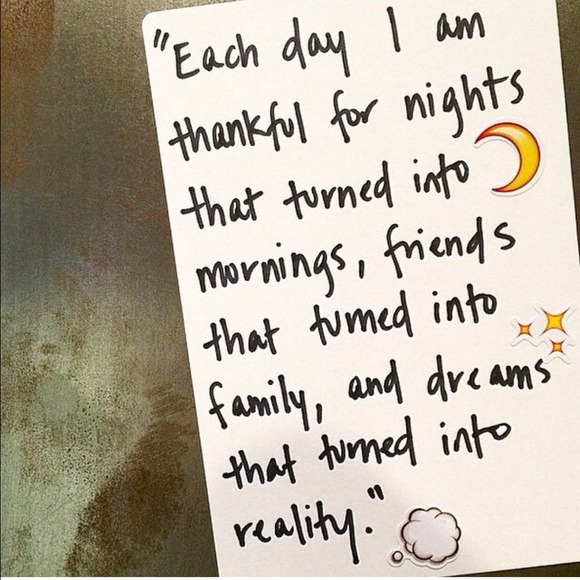 "Each day I am
thankful for nights
that turned into
mornings, friends
that turned into
family, and dreams
that turned into
reality."